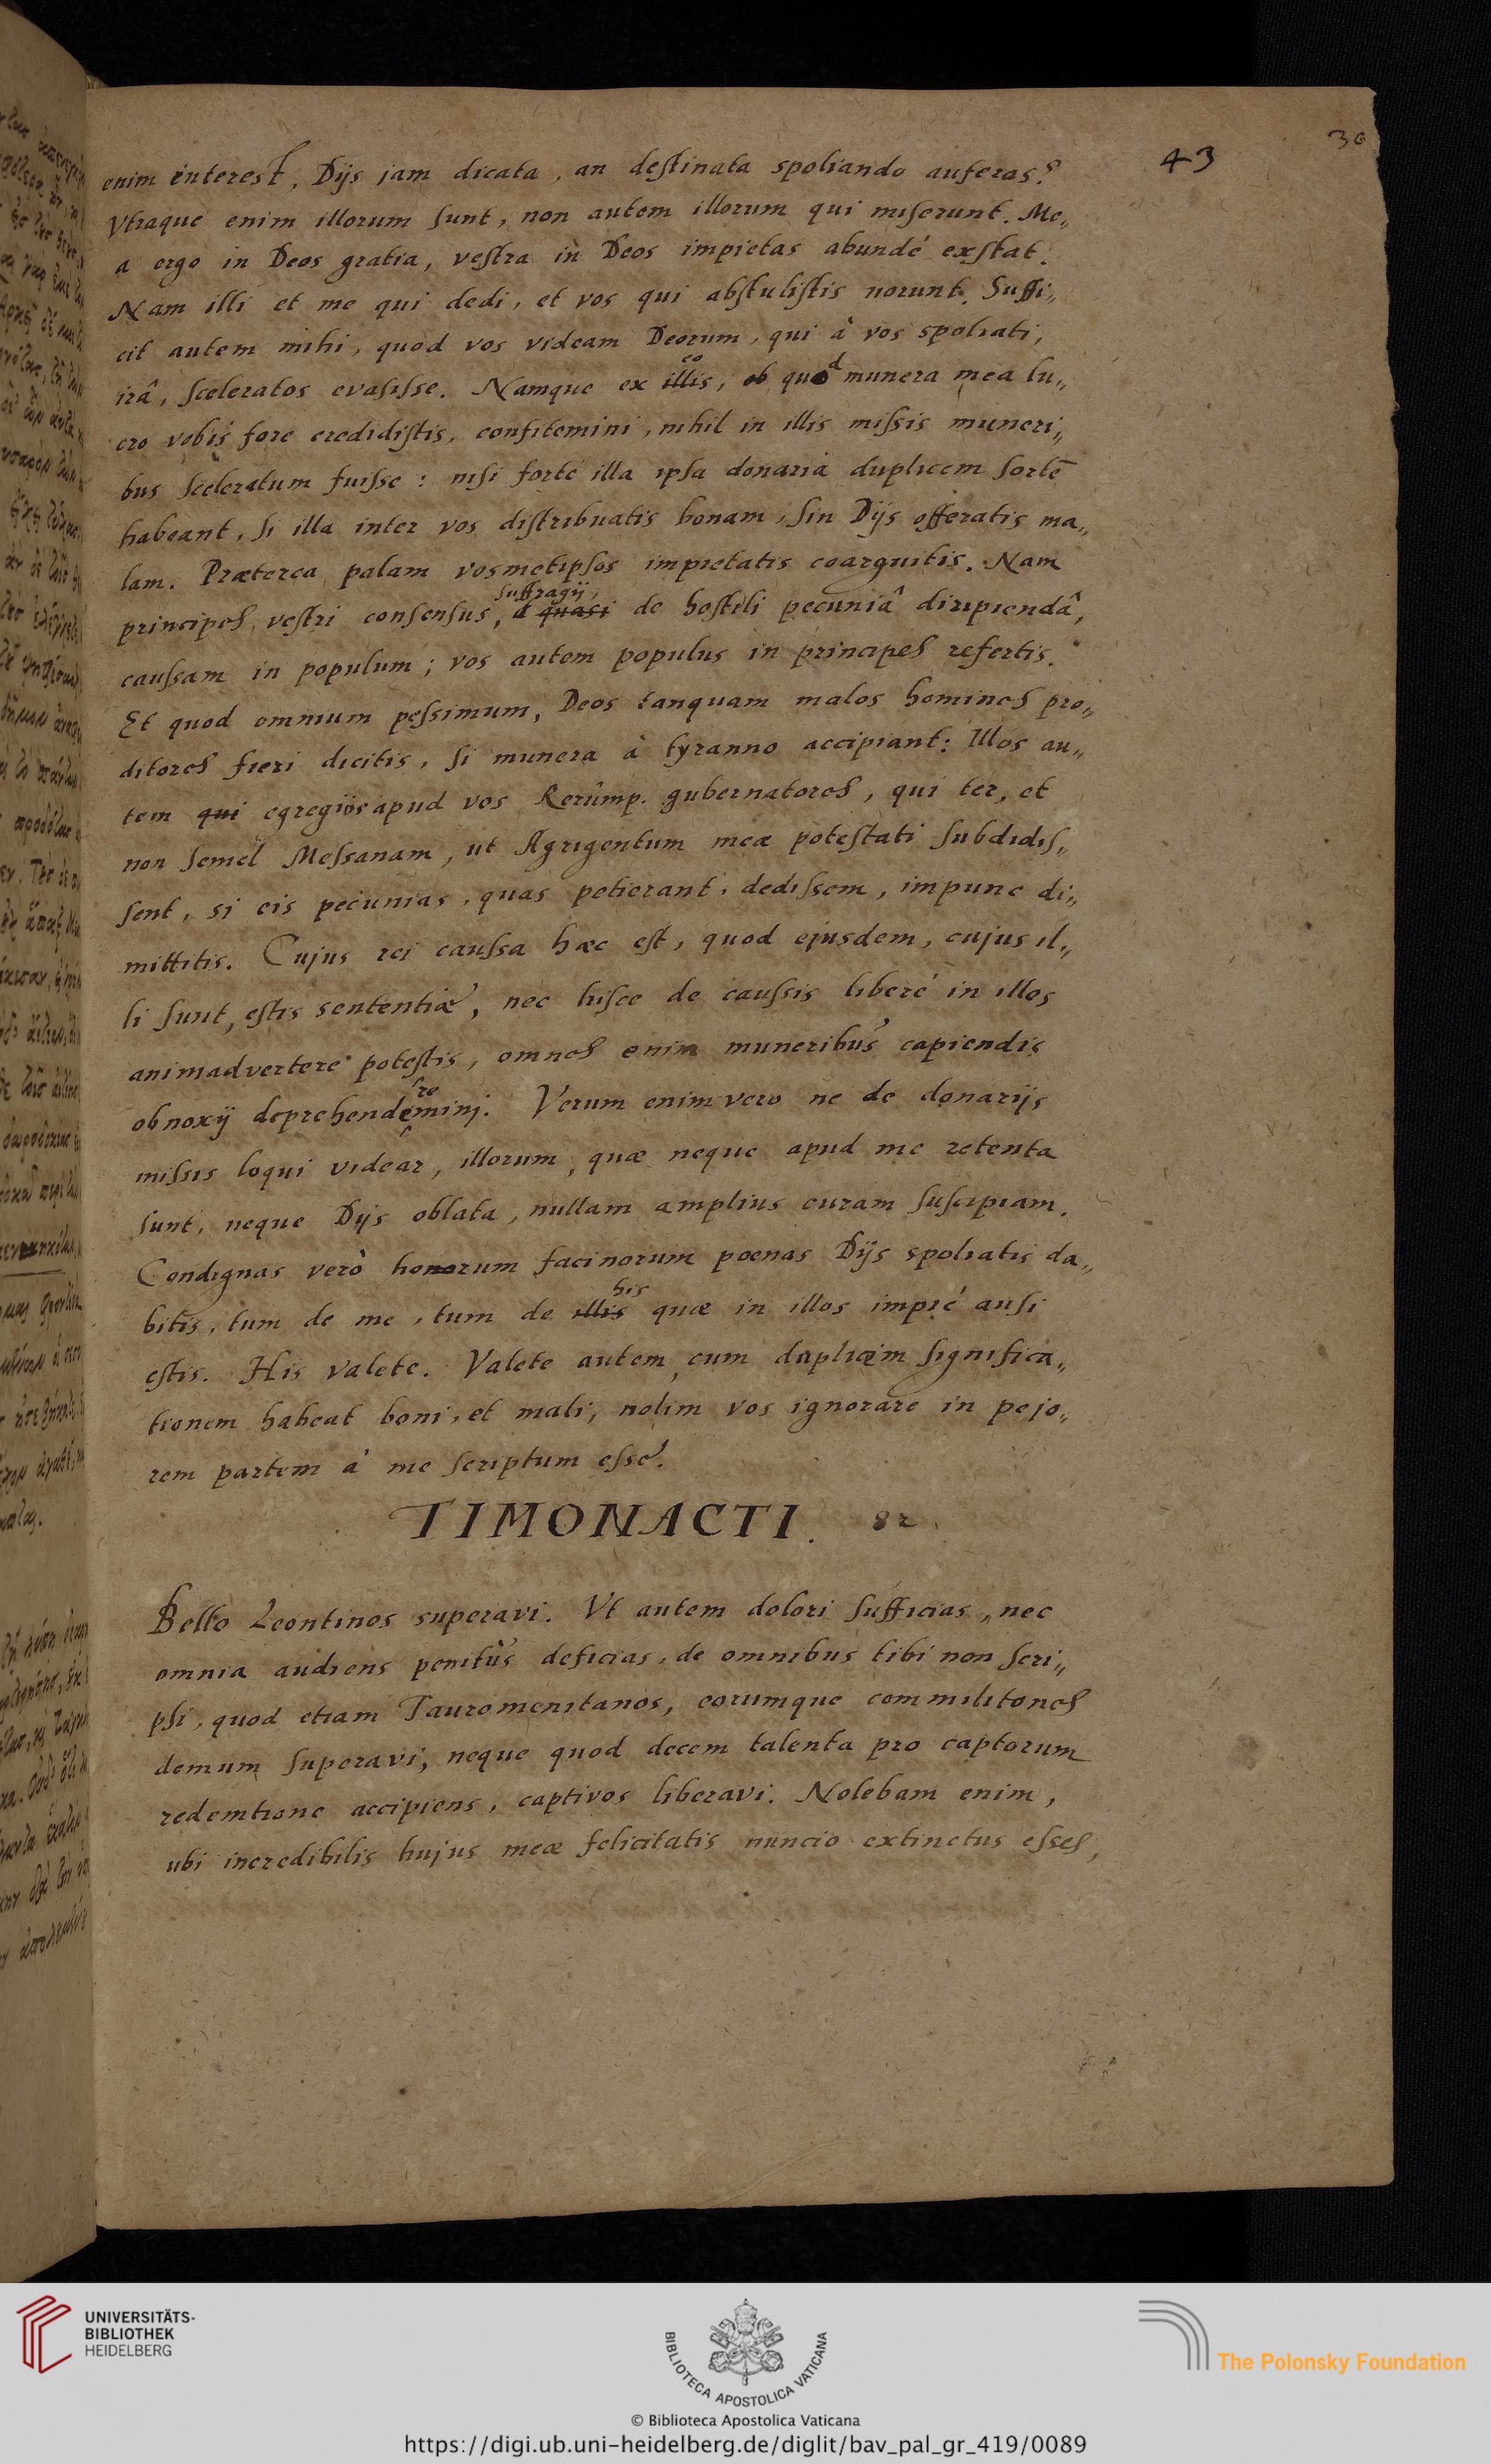 43
30
enim interest, Dijs jam dicata, an destinata spoliando auferas?
Vtraque enim illorum sunt, non autem illorum qui miserunt. Me„
a ergo in Deos gratia, vestra in Deos impietas abundé exstat.
Nam illi et me qui dedi, et vos qui abstulistis norunt. Suffi„
cit autem mihi, quod vos videam Deorum, qui à vos spoliati,
irâ, sceleratos evasisse. Namque ex illis, eo ob quod munera mea lu„
cro vobis fore credidistis, confitemini, nihil in illis missis muneri„
bus sceleratum fuisse: nisi forte illa ipsa donaria duplicem sortē
habeant, si illa inter vos distribuatis bonam, sin Dijs offeratis ma„
lam. Præterea palam vosmetipsos impietatis coarguitis. Nam
suffragij,
principes vestri consensus, à quasi de hostili pecuniâ diripiendâ,
caussam in populum; vos autem populus in principes refertis.
Et quod omnium pessimum, Deos tanquam malos homines pro„
ditores fieri dicitis, si munera à tyranno accipiant: Illos au„
tem qui egregiös apud vos Rerûmp. gubernatores, qui ter, et
non semel Messanam, ut Agrigentum meæ potestati subdidis„
sent, si eis pecunias, quas petierant, dedissem, impune di„
mittitis. Cujus rei caussa hæc est, quod ejusdem, cujus il„
li sunt, estis sententiæ, nec hisce de caussis liberé in illos
animadvertere potestis, omnes enim muneribus capiendis
re
obnoxij deprehendemini. Verum enim vero ne de donarijs
missis loqui videar, illorum, quæ neque apud me retenta
sunt, neque Dijs oblata, nullam amplius curam suscipiam.
Condignas verò honorum facinorum poenas Dijs spoliatis da„
his
bitis, tum de me, tum de illis quæ in illos impié ausi
estis. His valete. Valete autem, cum duplicem significa„
tionem habeat boni, et mali, nolim vos ignorare in pejo„
rem partem à me scriptum esse.
TIMONACTI. 82
Bello Leontinos superavi. Vt autem dolori sufficias, nec
omnia audiens penitùs deficias, de omnibus tibi non scri„
psi, quod etiam Tauromenitanos, eorumque commilitones
demum superavi, neque quod decem talenta pro captorum
redemtione accipiens, captivos liberavi. Nolebam enim,
ubi incredibilis hujus meæ felicitatis nuncio extinctus esses,
UNIVERSITÄTS-
BIBLIOTHEK
HEIDELBERG
BIBLIOTECA APOSTOLICA VATICANA
The Polonsky Foundation
© Biblioteca Apostolica Vaticana
https://digi.ub.uni-heidelberg.de/diglit/bav_pal_gr_419/0089